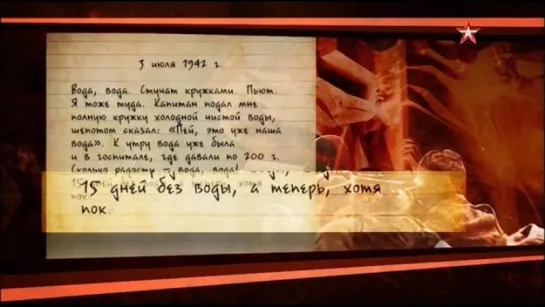 3 июля 1942 г.
Вода, вода. Стучат кружками. Пьют.
Я тоже туда. Капитан подал мне
полную кружку холодной чистой воды,
шепотом сказал: «Пей, это уже наша
вода». К утру вода уже была
и в госпитале, где давали по 200 г.
Сколько радости вода, вода!
15 дней
пок
15 дней без воды, а теперь, хотя
пок